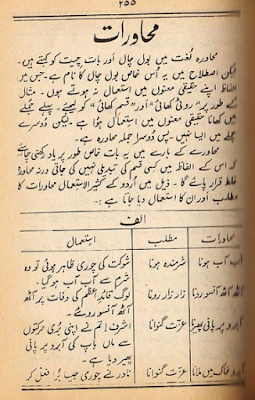 ۲۵۵
محاورات
محاورہ لُغت میں بول چال اور بات چیت کو کہتے ہیں۔
لیکن اصطلاح میں یہ اُس خاص بول چال کا نام ہے۔ جس میں
الفاظ اپنے حقیقی معنوں میں استعمال نہ ہوتے ہوں۔ مثال
کے طور پر "روٹی کھائی" اور "قسم کھائی" کو لیجئے۔ پہلے جملے
میں کھانا حقیقی معنوں میں استعمال ہوا ہے۔ لیکن دُوسرے
جملے میں ایسا نہیں۔ پس دُوسرا جملہ محاورہ ہے۔
محاورے کے بارے میں یہ بات خاص طور پر یاد رکھنی چاہئے
کہ اس کے الفاظ میں کسی قسم کی تبدیلی نہیں کی جاتی ورنہ محاورہ
غلط قرار پائے گا۔ ذیل میں اُردو کے کثیر الاستعمال محاورات کا
مطلب اور ان کا استعمال دیا جاتا ہے:
الف
محاورات مطلب استعمال
آب آب ہونا شرمندہ ہونا شوکت کی چوری ظاہر ہوئی تو وہ
شرم سے آب آب ہو گیا۔
آٹھ آٹھ آنسو رونا زار زار رونا لوگ قائدِاعظم کی وفات پر آٹھ
آٹھ آنسو روئے۔
آبرو پر پانی پھیرنا عزّت گنوانا اشرف! تم نے اپنی بُری حرکتوں
سے ماں باپ کی آبرو پر پانی
پھیر دیا ہے۔
آبرو خاک میں ملانا عزّت گنوانا نادر نے چوری جیسا بُرا فعل کر